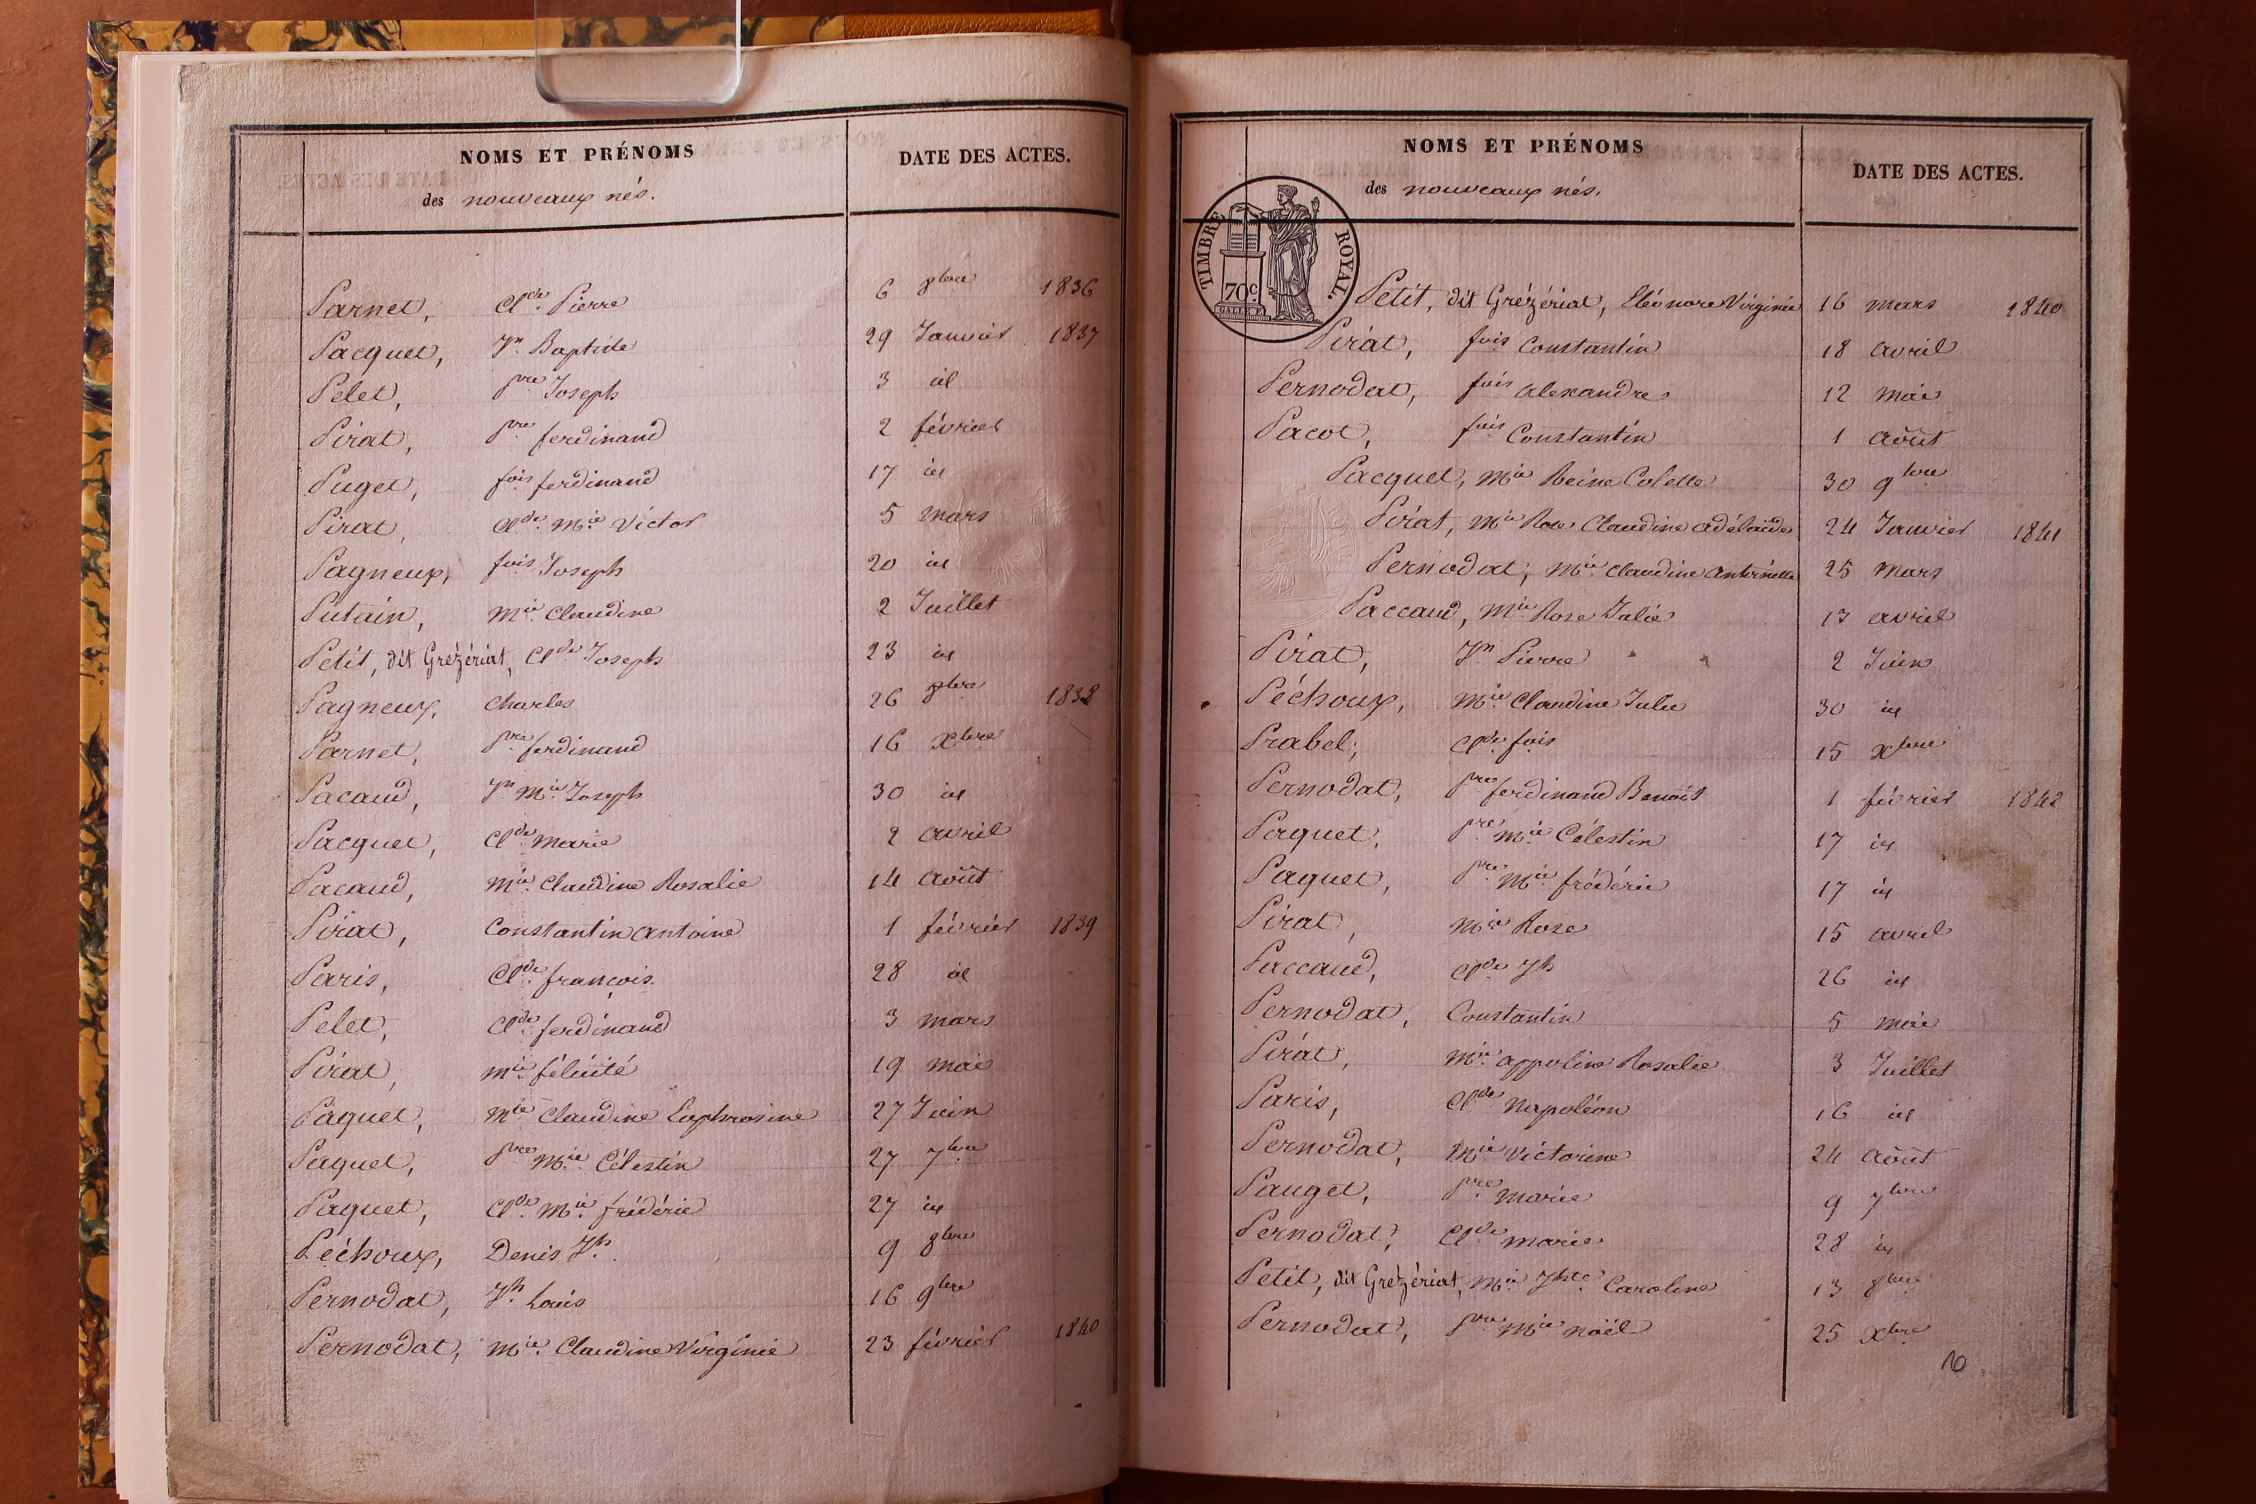 NOMS ET PRÉNOMS
des nouveaux nés.
DATE DES ACTES.
Parnet, Cl.de Pierre 6 8bre 1836
Pacquet, Jn Baptiste 29 Janvier 1837
Pelet, Pre Joseph 3 id
Pirat, Pre ferdinand 2 février
Puget, fois ferdinand 17 id
Pirat, Cl.de M.ie Victor 5 mars
Pagneux, fois Joseph 20 id
Putain, M.ie Claudine 2 Juillet
Petit, dit Grézériat, Cl.de Joseph 23 id
Pagneux, Charles 26 8bre 1838
Parnet, Pre ferdinand 16 Xbre
Pacaud, Jn M.ie Joseph 30 id
Pacquet, Cl.de Marie 2 avril
Pacaud, M.ie Claudine Rosalie 14 Août
Pirat, Constantin antoine 1 février 1839
Paris, Cl.de françois 28 id
Pelet, Cl.de ferdinand 3 mars
Pirat, M.ie félicité 19 mai
Paquet, M.ie Claudine Euphrosine 27 Juin
Paquet, Pre M.ie Célestin 27 7bre
Paquet, Cl.de M.ie frédéric 27 id
Péchoux, Denis Jh 9 8bre
Pernodat, Jh Louis 16 9bre
Pernodat, M.ie Claudine Virginie 23 février 1840
NOMS ET PRÉNOMS
des nouveaux nés.
DATE DES ACTES.
TIMBRE ROYAL.
70c
Petit, dit Grézériat, Eléonore Virginie 16 mars 1840
Pirat, fois Constantin 18 avril
Pernodat, fois alexandre 12 mai
Pacot, fois Constantin 1 août
Pacquet, M.ie Reine Colette 30 9bre
Pirat, M.ie Rose Claudine adélaïde 24 Janvier 1841
Pernodat, M.ie Claudine antoinette 25 mars
Paccaud, M.ie Rose Julie 13 avril
Pirat, Jn Pierre 2 Juin
Péchoux, M.ie Claudine Julie 30 id
Prabel, Cl.de fois 15 Xbre
Pernodat, Pre ferdinand Benoit 1 février 1842
Paquet, Pre M.ie Célestin 17 id
Paquet, Pre M.ie frédéric 17 id
Pirat, M.ie Rose 15 avril
Paccaud, Cl.de Jh 26 id
Pernodat, Constantin 5 mai
Pirat, M.ie appoline Rosalie 3 Juillet
Paris, Cl.de Napoléon 16 id
Pernodat, M.ie Victorine 24 Août
Pauget, Pre Marie 9 7bre
Pernodat, Cl.de marie 28 id
Petit, dit Grézériat, M.ie Jhte Caroline 13 8bre
Pernodat, Pre M.ie noël 25 Xbre
10